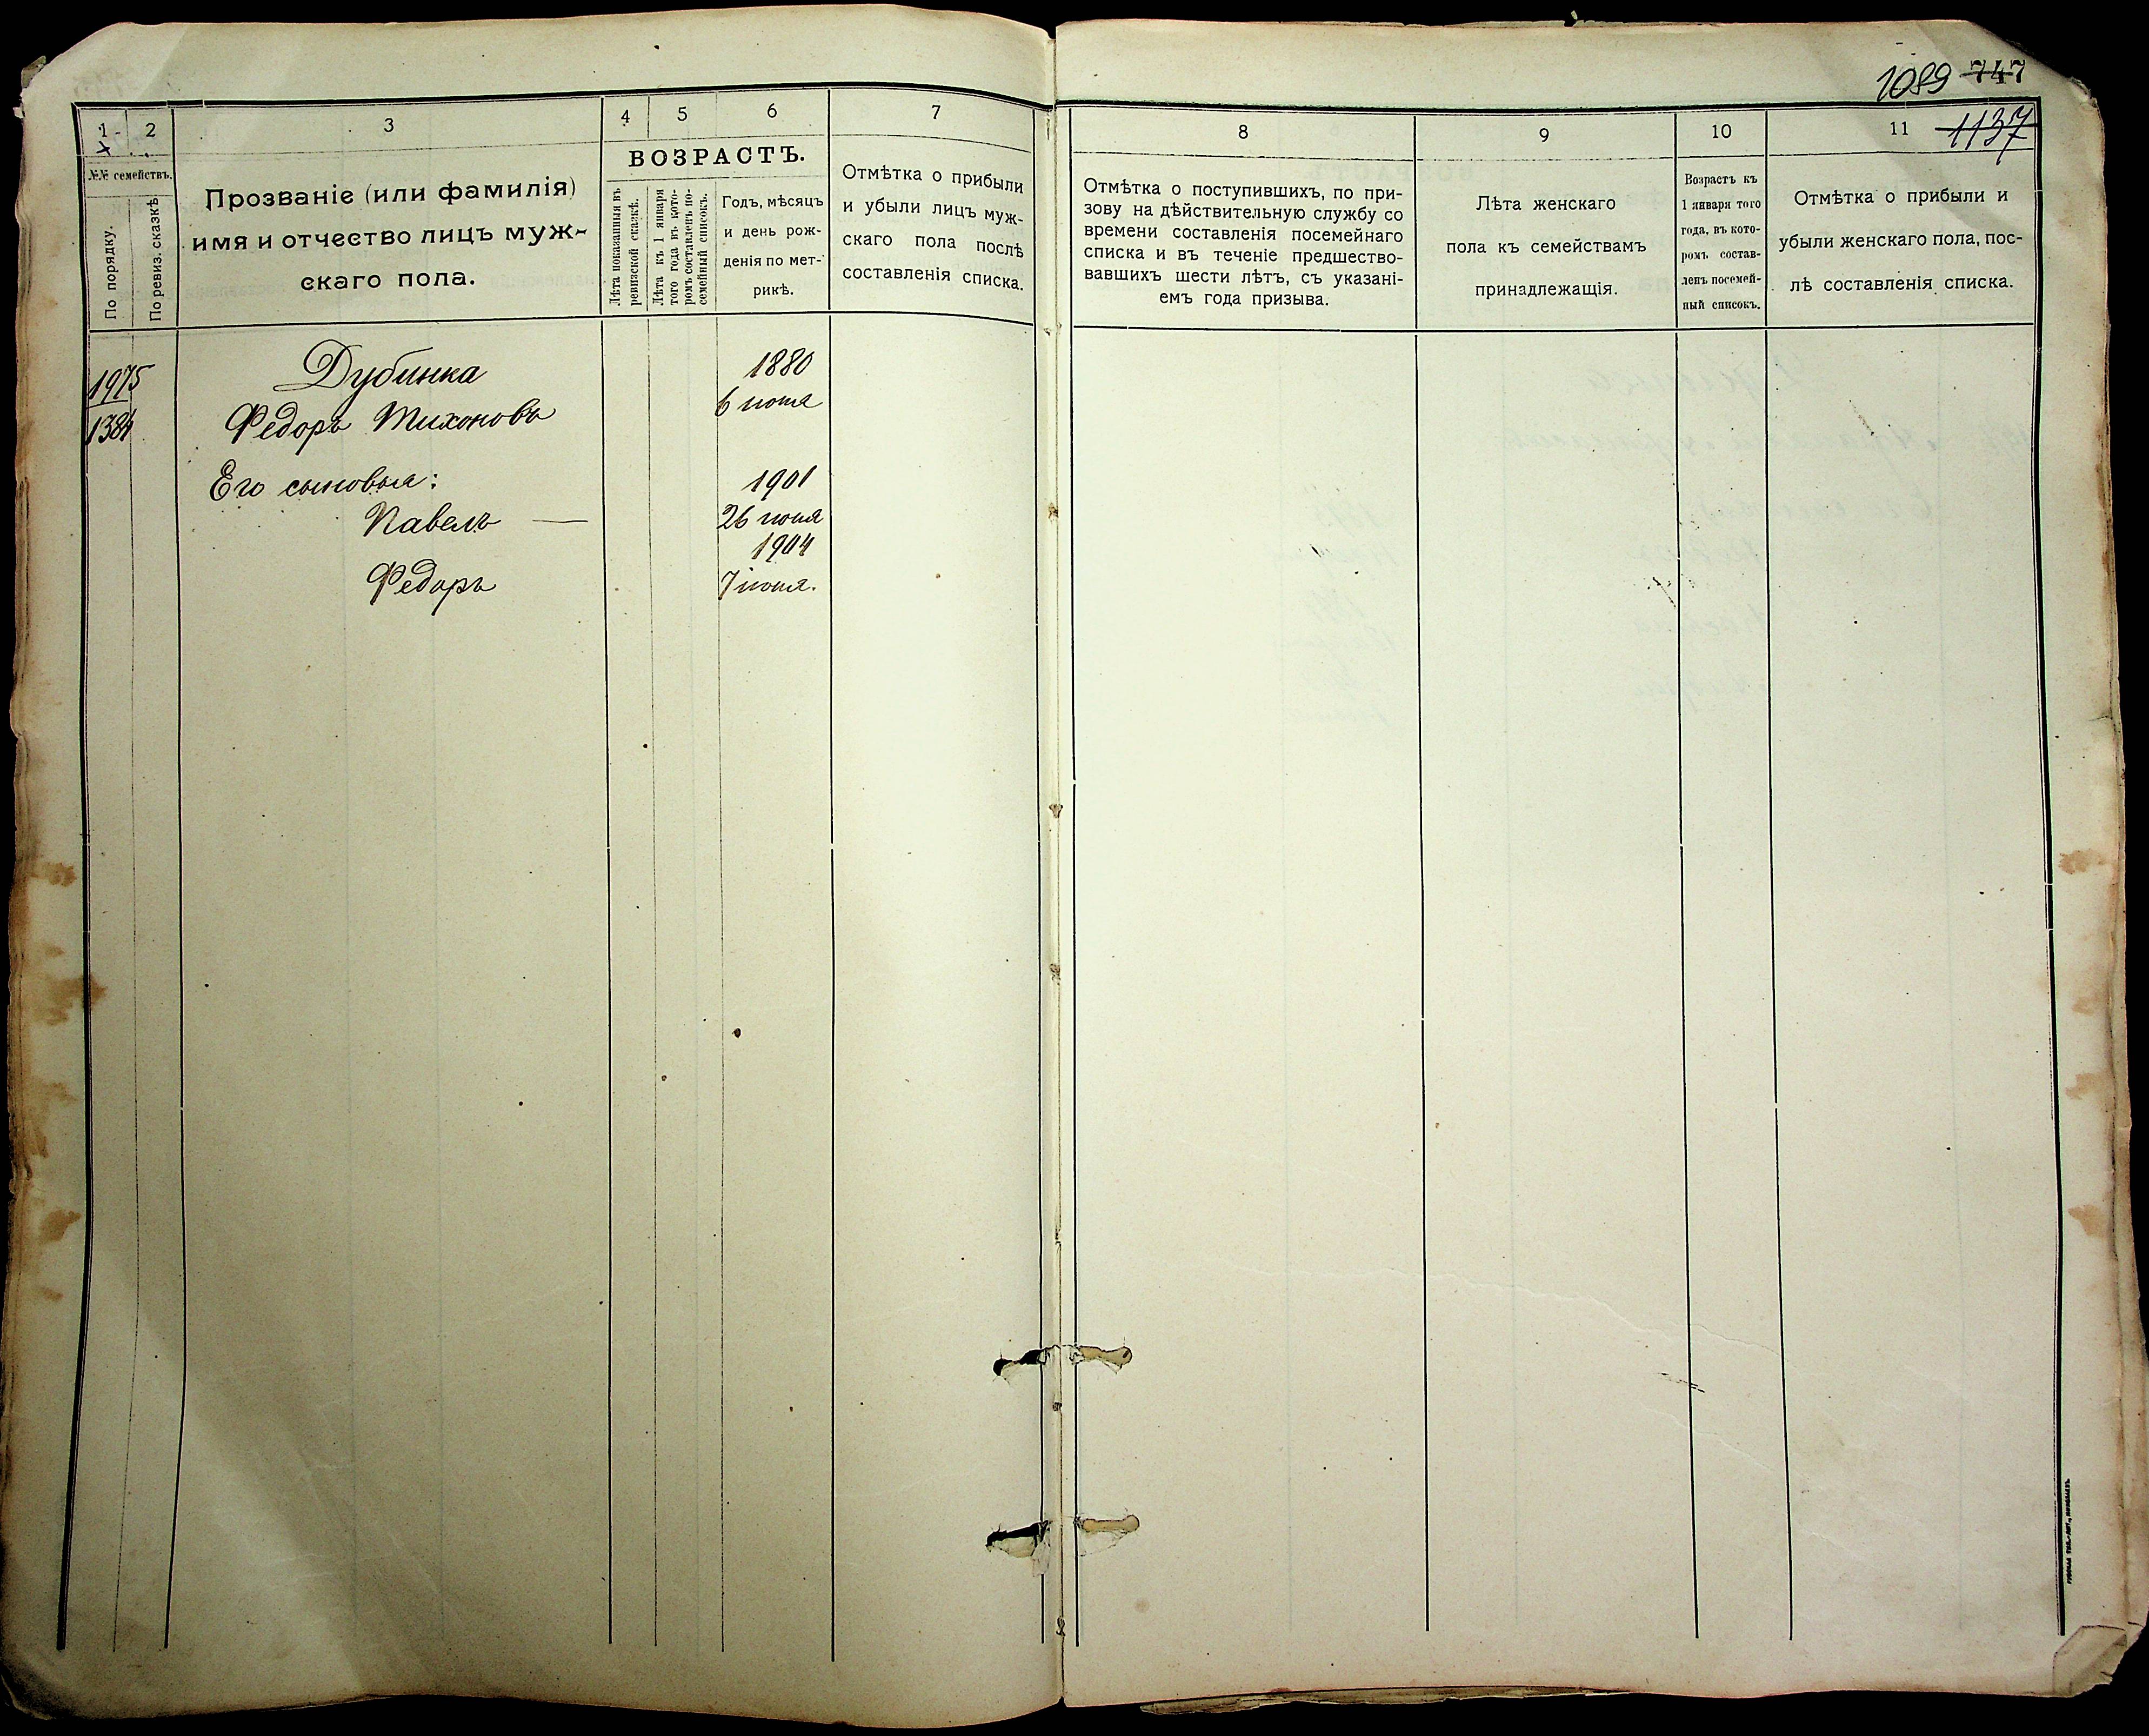 1089 747
1137
1 2 3 4 5 6 7
№№ семействъ.
По порядку.
По ревиз. сказкѣ
Прозваніе (или фамилія)
имя и отчество лицъ муж-
скаго пола.
ВОЗРАСТЪ.
Лѣта показанныя въ
ревизской сказкѣ.
Лѣта къ 1 января
того года въ кото-
ромъ составленъ по-
семейный списокъ.
Годъ, мѣсяцъ
и день рож-
денія по мет-
рикѣ.
Отмѣтка о прибыли
и убыли лицъ муж-
скаго пола послѣ
составленія списка.
1975
1384
Дубинка 1880
Федоръ Тихоновъ 6
Его сыновья: 1901
Павелъ — 26 июня
1904
Федоръ 7 іюня.
8 9 10 11
Отмѣтка о поступившихъ, по при-
зову на дѣйствительную службу со
времени составленія посемейнаго
списка и въ теченіе предшество-
вавшихъ шести лѣтъ, съ указані-
емъ года призыва.
Лѣта женскаго
пола къ семействамъ
принадлежащія.
Возрастъ къ
1 января того
года, въ кото-
ромъ состав-
ленъ посемей-
ный списокъ.
Отмѣтка о прибыли и
убыли женскаго пола, пос-
лѣ составленія списка.